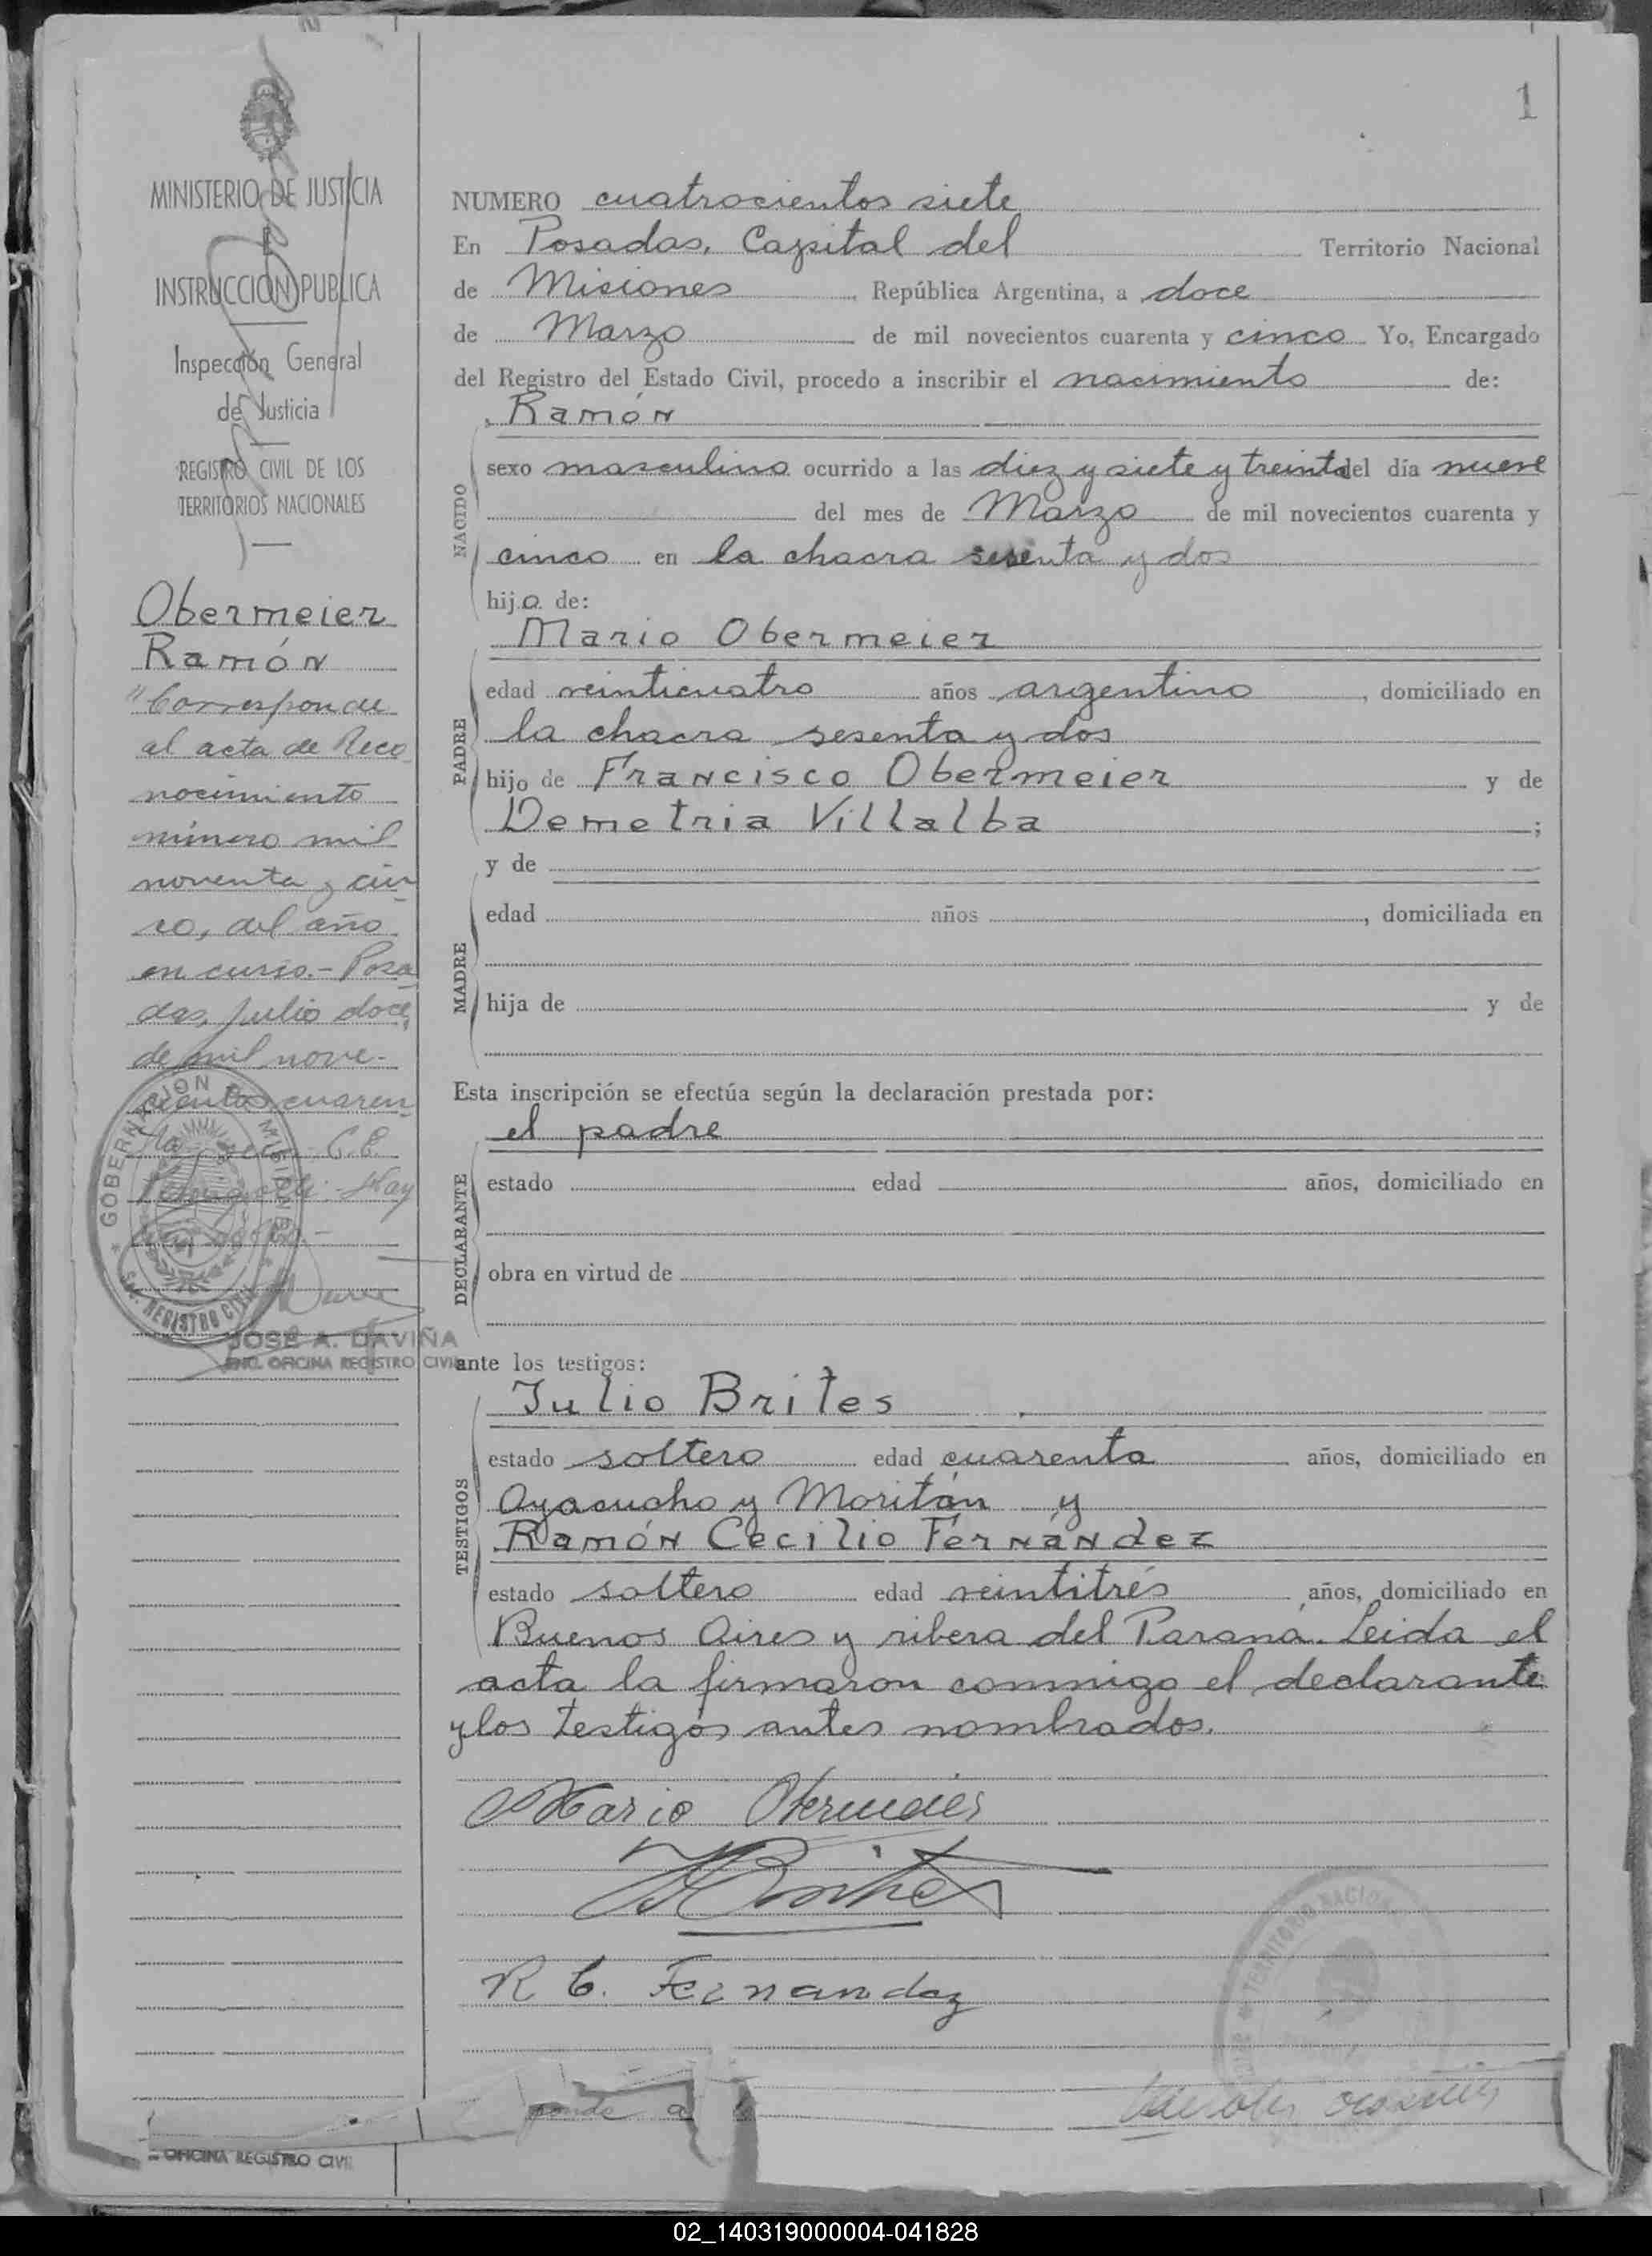 1
MINISTERIO DE JUSTICIA
E
INSTRUCCION PUBLICA
Inspección General
de Justicia
REGISTRO CIVIL DE LOS
TERRITORIOS NACIONALES
Obermeier
Ramón
"Corresponde
al acta de Reco
nocimiento
número mil
noventa y cin-
co, del año
en curso.- Posa
das, Julio doce
de mil nove-
cientos cuaren
GOBERNACION MISIONES
REGISTRO CIVIL
JOSÉ A. DAVIÑA
ENC. OFICINA REGISTRO CIVIL
NUMERO cuatrocientos siete
En Posadas, Capital del Territorio Nacional
de Misiones, República Argentina, a doce
de Marzo de mil novecientos cuarenta y cinco Yo, Encargado
del Registro del Estado Civil, procedo a inscribir el nacimiento de:
NACIDO
Ramón
sexo masculino ocurrido a las diez y siete y treinta del día nueve
del mes de Marzo de mil novecientos cuarenta y
cinco en la chacra sesenta y dos
hijo de:
PADRE
Mario Obermeier
edad veinticuatro años argentino, domiciliado en
la chacra sesenta y dos
hijo de Francisco Obermeier y de
Demetria Villalba;
MADRE
y de
edad años , domiciliada en
hija de y de
Esta inscripción se efectúa según la declaración prestada por:
DECLARANTE
el padre
estado edad años, domiciliado en
obra en virtud de
ante los testigos:
TESTIGOS
Julio Brites
estado soltero edad cuarenta años, domiciliado en
Ayacucho y Moritán y
Ramón Cecilio Fernández
estado soltero edad veintitrés años, domiciliado en
Buenos Aires y ribera del Paraná. Leida el
acta la firmaron conmigo el declarante
y los testigos antes nombrados.
Mario Obermeier
J Brites
R C. Fernandez
TERRITORIO NACIONAL
ponde a
OFICINA REGISTRO CIVIL
02_140319000004-041828